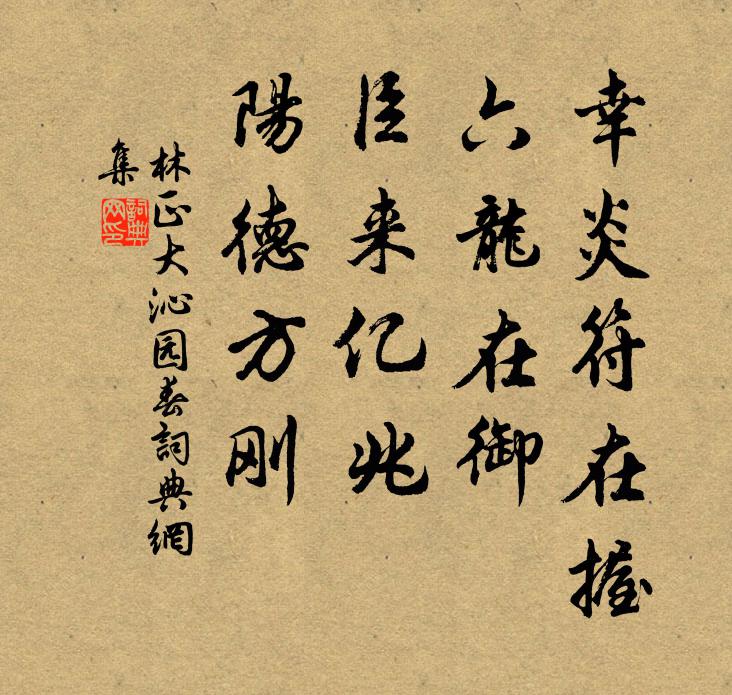 幸炎符在握
六龍在御
臣来亿兆
陽德方刚
林正大沁园春詞典網
集
詞典
网印